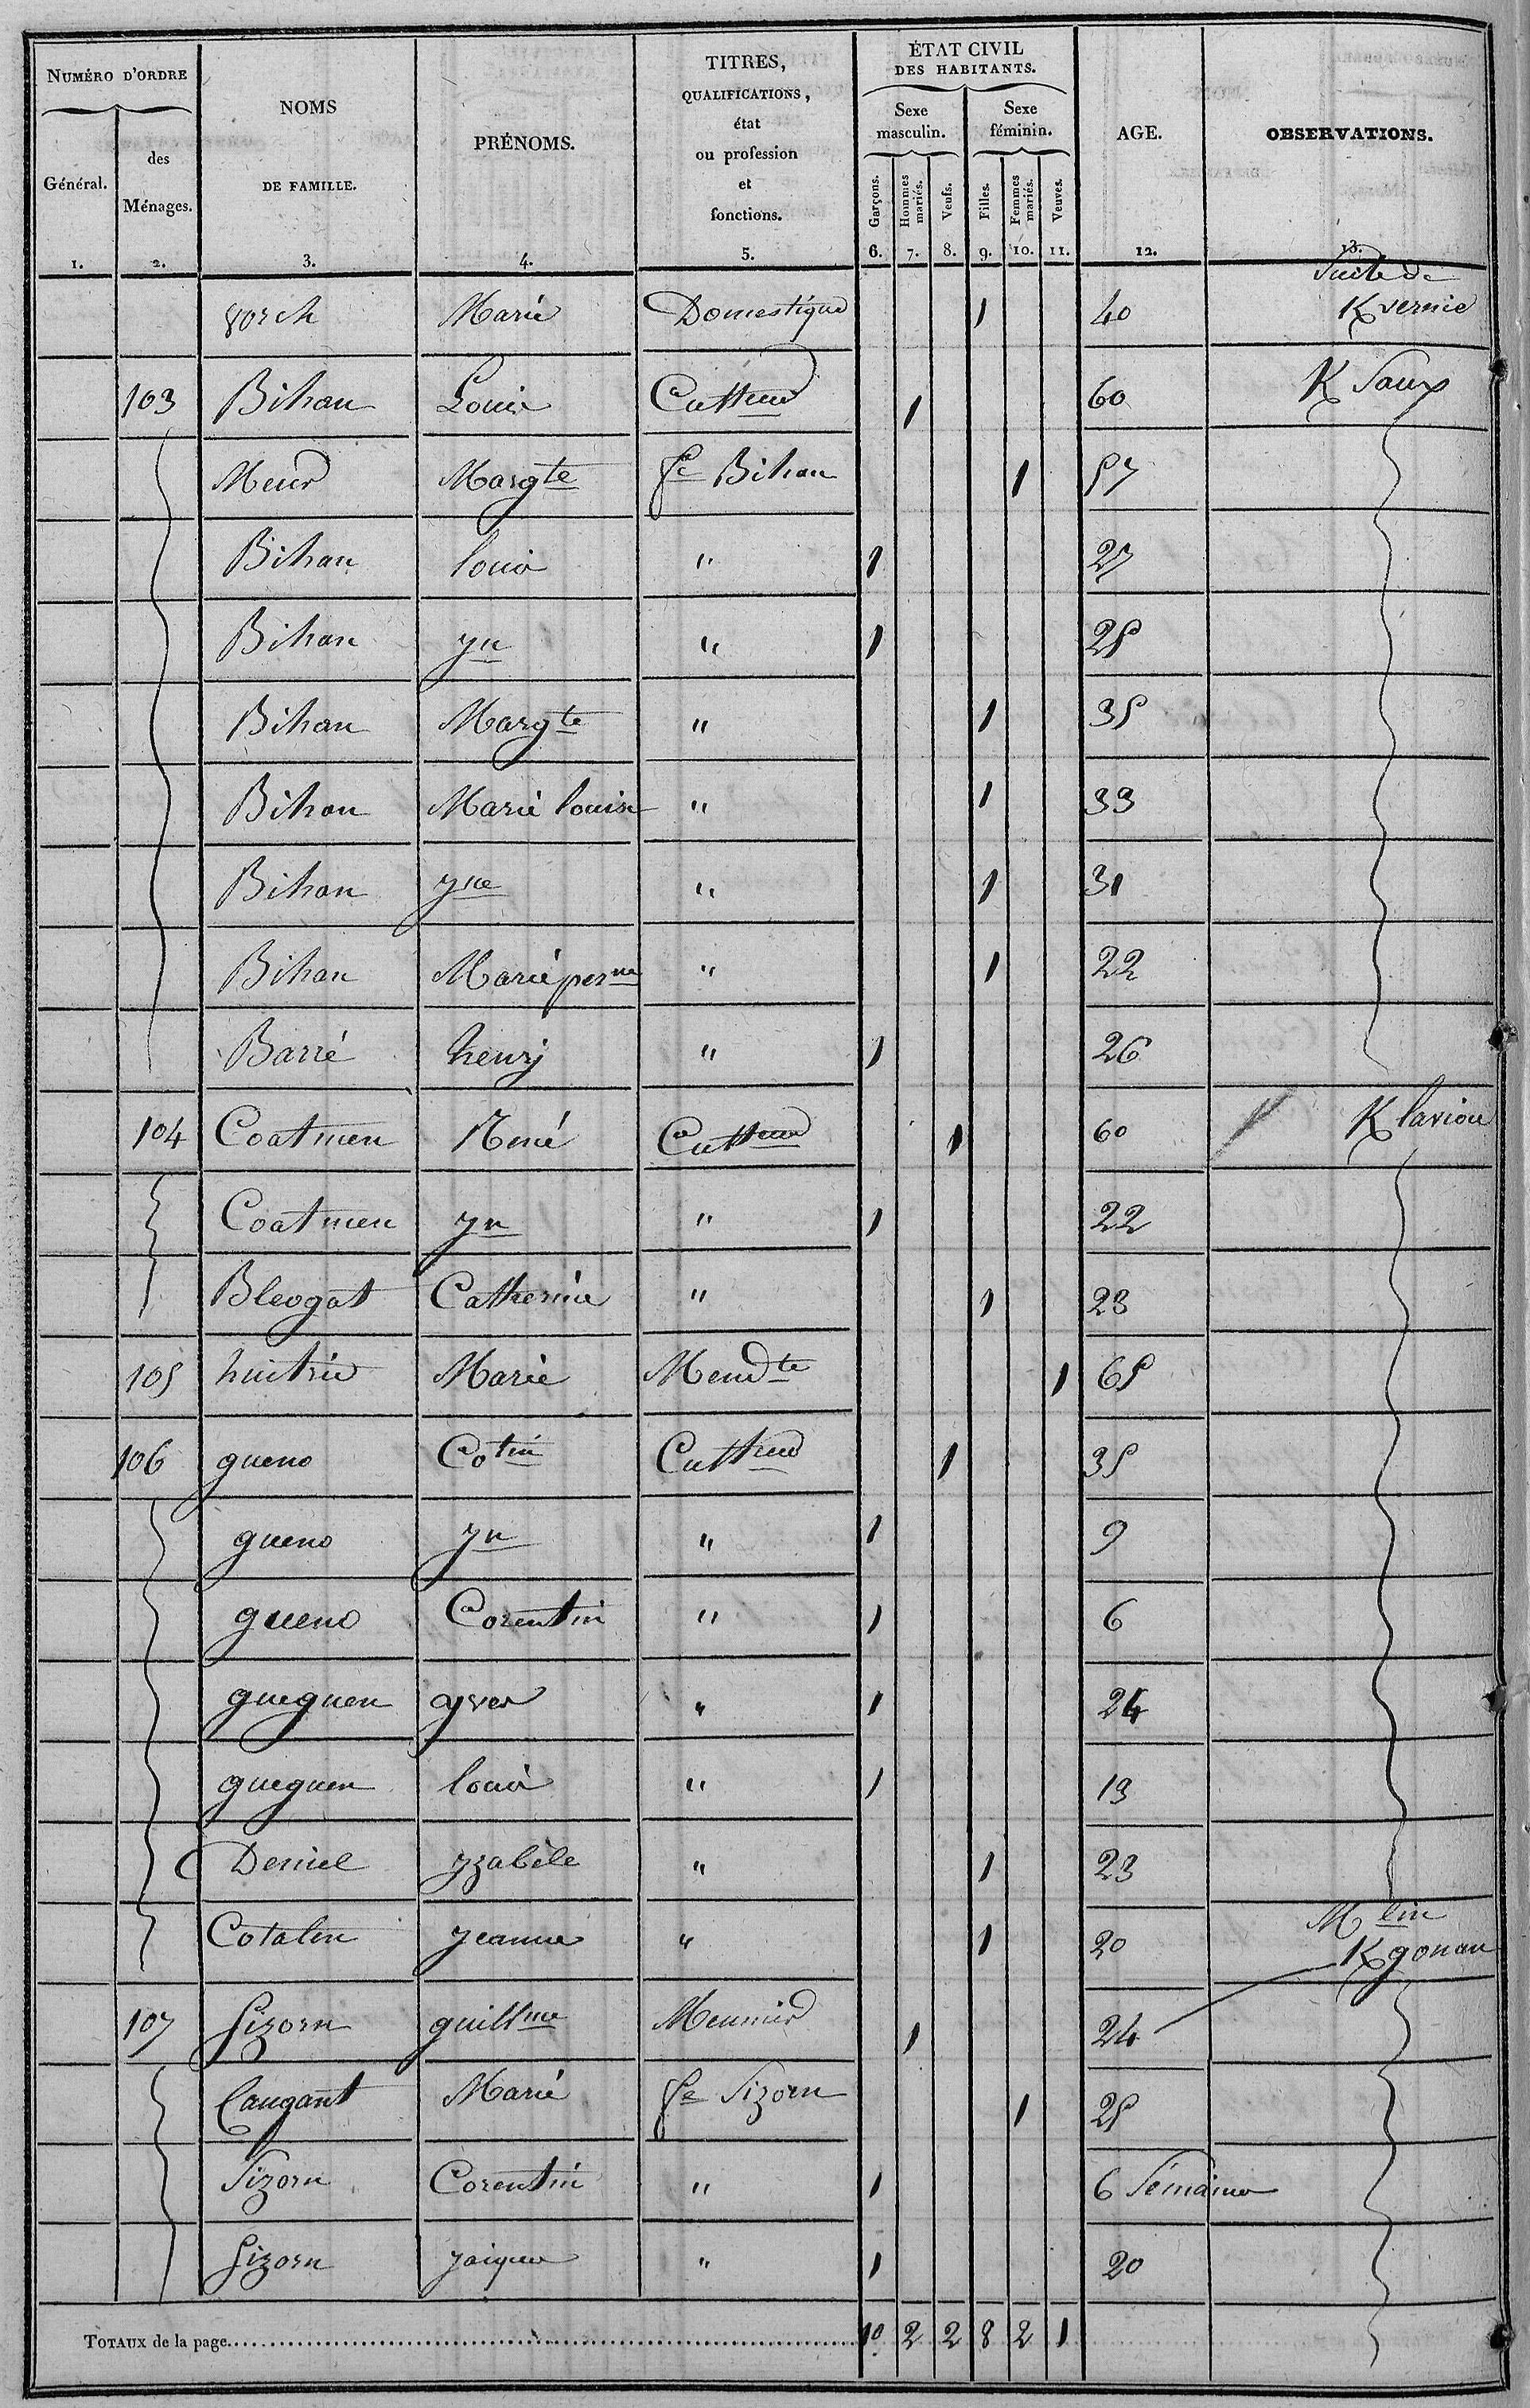 NUMÉRO D'ORDRE | NOMS DE FAMILLE. | PRÉNOMS. | TITRES, QUALIFICATIONS, état ou profession et fonctions. | ÉTAT CIVIL DES HABITANTS. | AGE. | OBSERVATIONS.
Général. | des Ménages. | Sexe masculin. | Sexe féminin.
Garçons. | Hommes mariés. | Veufs. | Filles. | Femmes mariés. | Veuves.
1. | 2. | 3. | 4. | 5. | 6. | 7. | 8. | 9. | 10. | 11. | 12. | 13.
Marie | Domestique | 1 | 40 | Suite de K vernie
103 | Bihan | Louis | Cultteur | 1 | 60 | K Saux
Meur | Margte | fe Bihan | 1 | 57
Bihan | louis | " | 1 | 27
Bihan | yn | " | 1 | 25
Bihan | Margte | " | 1 | 35
Bihan | Marie louise | " | 1 | 33
Bihan | yne | " | 1 | 31
Bihan | Marie perne | " | 1 | 22
Barré | henry | " | 1 | 26
104 | Coatmen | René | Cultteur | 1 | 60 | K laviou
Coatmen | yn | " | 1 | 22
Bleogat | Catherine | " | 1 | 23
105 | huitric | Marie | Mendte | 1 | 65
106 | gueno | Cotin | Cultteur | 1 | 35
gueno | yn | " | 1 | 9
gueno | Corentin | " | 1 | 6
gueguen | yves | " | 1 | 24
gueguen | louis | " | 1 | 19
Deniel | yzabèle | " | 1 | 23
Cotalen | jeanne | " | 1 | 20 | Mlin K gonan
107 | Sizorn | guillme | Meunier | 1 | 24
Caugant | Marie | fe Sizorn | 1 | 25
Sizorn | Corentin | " | 1 | 6 Semaines
Sizorn | jaques | " | 1 | 20
TOTAUX de la page | 10 | 2 | 2 | 8 | 2 | 1